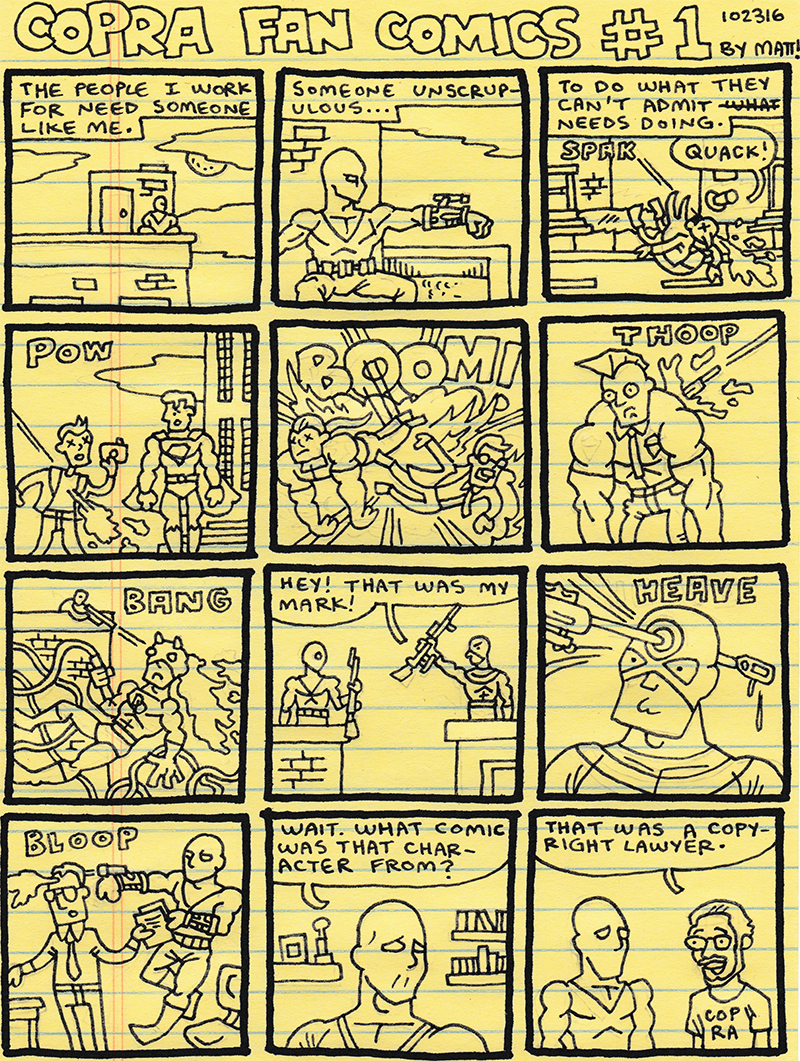 COPRA FAN COMICS #1
102316
BY MATT!
THE PEOPLE I WORK
FOR NEED SOMEONE
LIKE ME.
SOMEONE UNSCRUP-
ULOUS...
TO DO WHAT THEY
CAN'T ADMIT WHAT
NEEDS DOING.
SPAK
QUACK!
POW
BOOM!
THOOP
BANG
HEY! THAT WAS MY
MARK!
HEAVE
BLOOP
WAIT. WHAT COMIC
WAS THAT CHAR-
ACTER FROM?
THAT WAS A COPY-
RIGHT LAWYER.
COP
RA